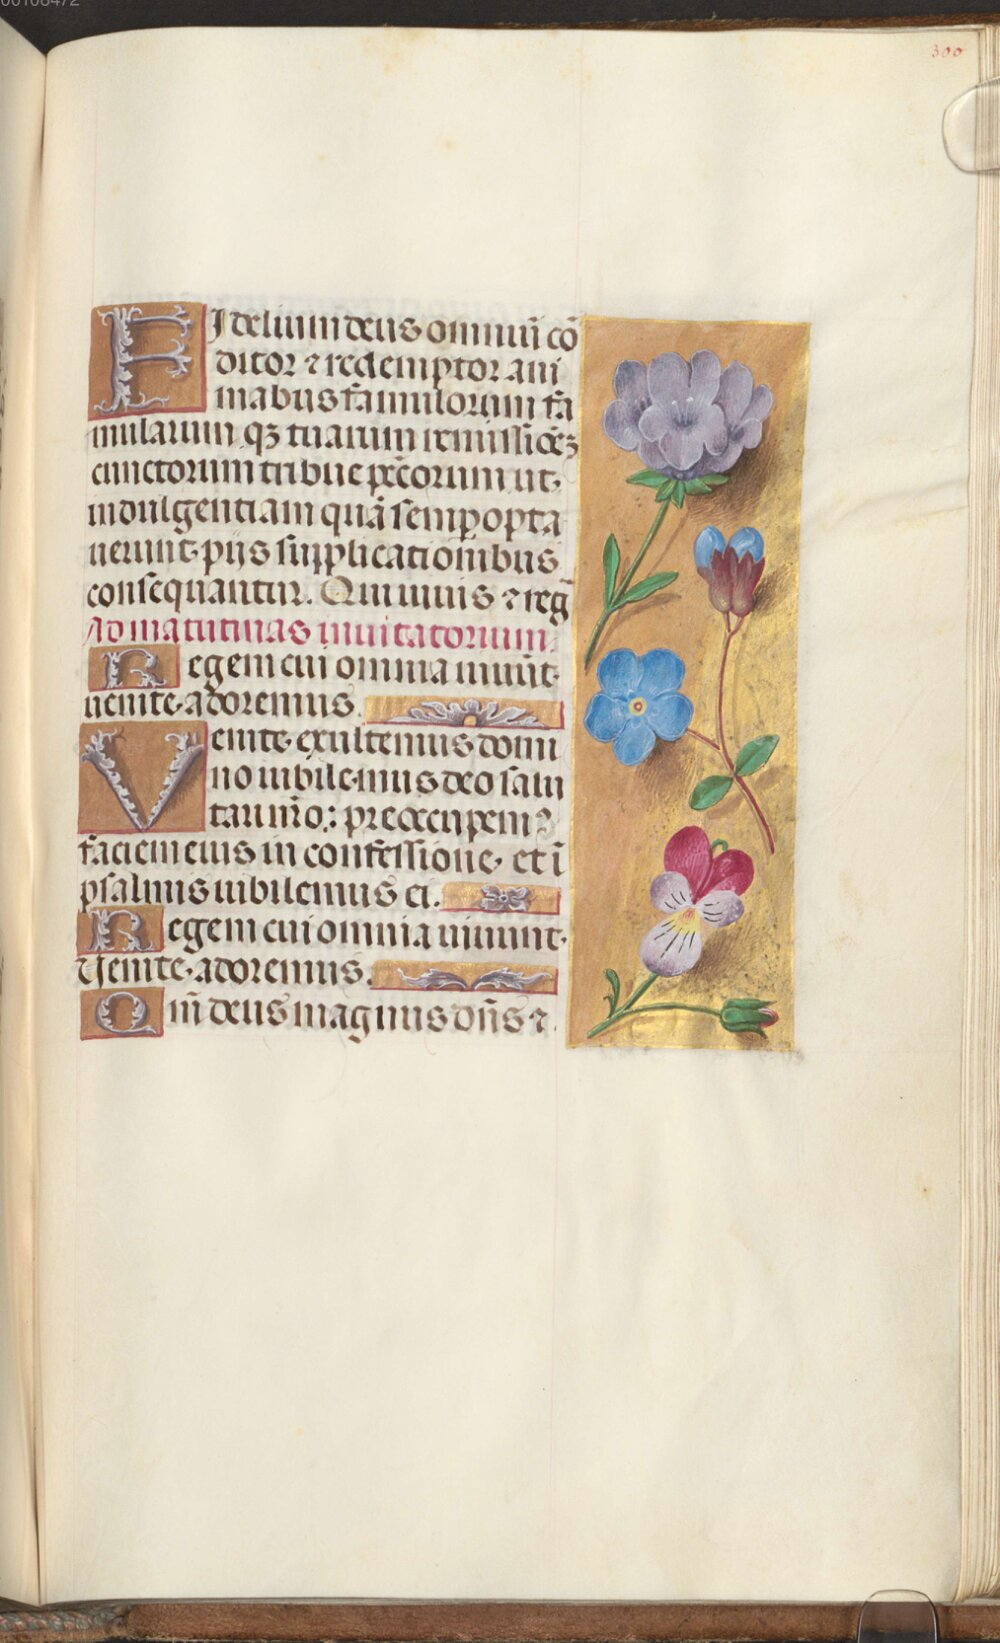 00108472
300
FIdelium deus omniũ cõ
ditor ⁊ redemptor ani
mabus famulorum fa
mularum qꝫ tuarum remissiõeꝫ
cunctorum tribue pc̃corum ut
indulgentiam quã semꝑ opta
uerunt pijs supplicationibus
consequantur. Qui uiuis ⁊ reg̃
Ad matutinas inuitatorium.
Regem cui omnia uiuũt
uenite adoremus.
Uenite exultemus domi
no iubilemus deo salu
tari nr̃o: preoccupemꝰ
faciem eius in confessione, et ĩ
psalmis iubilemus ei.
Regem cui omnia uiuunt.
Uenite adoremus.
Qm̃ deus magnus dñs ⁊.